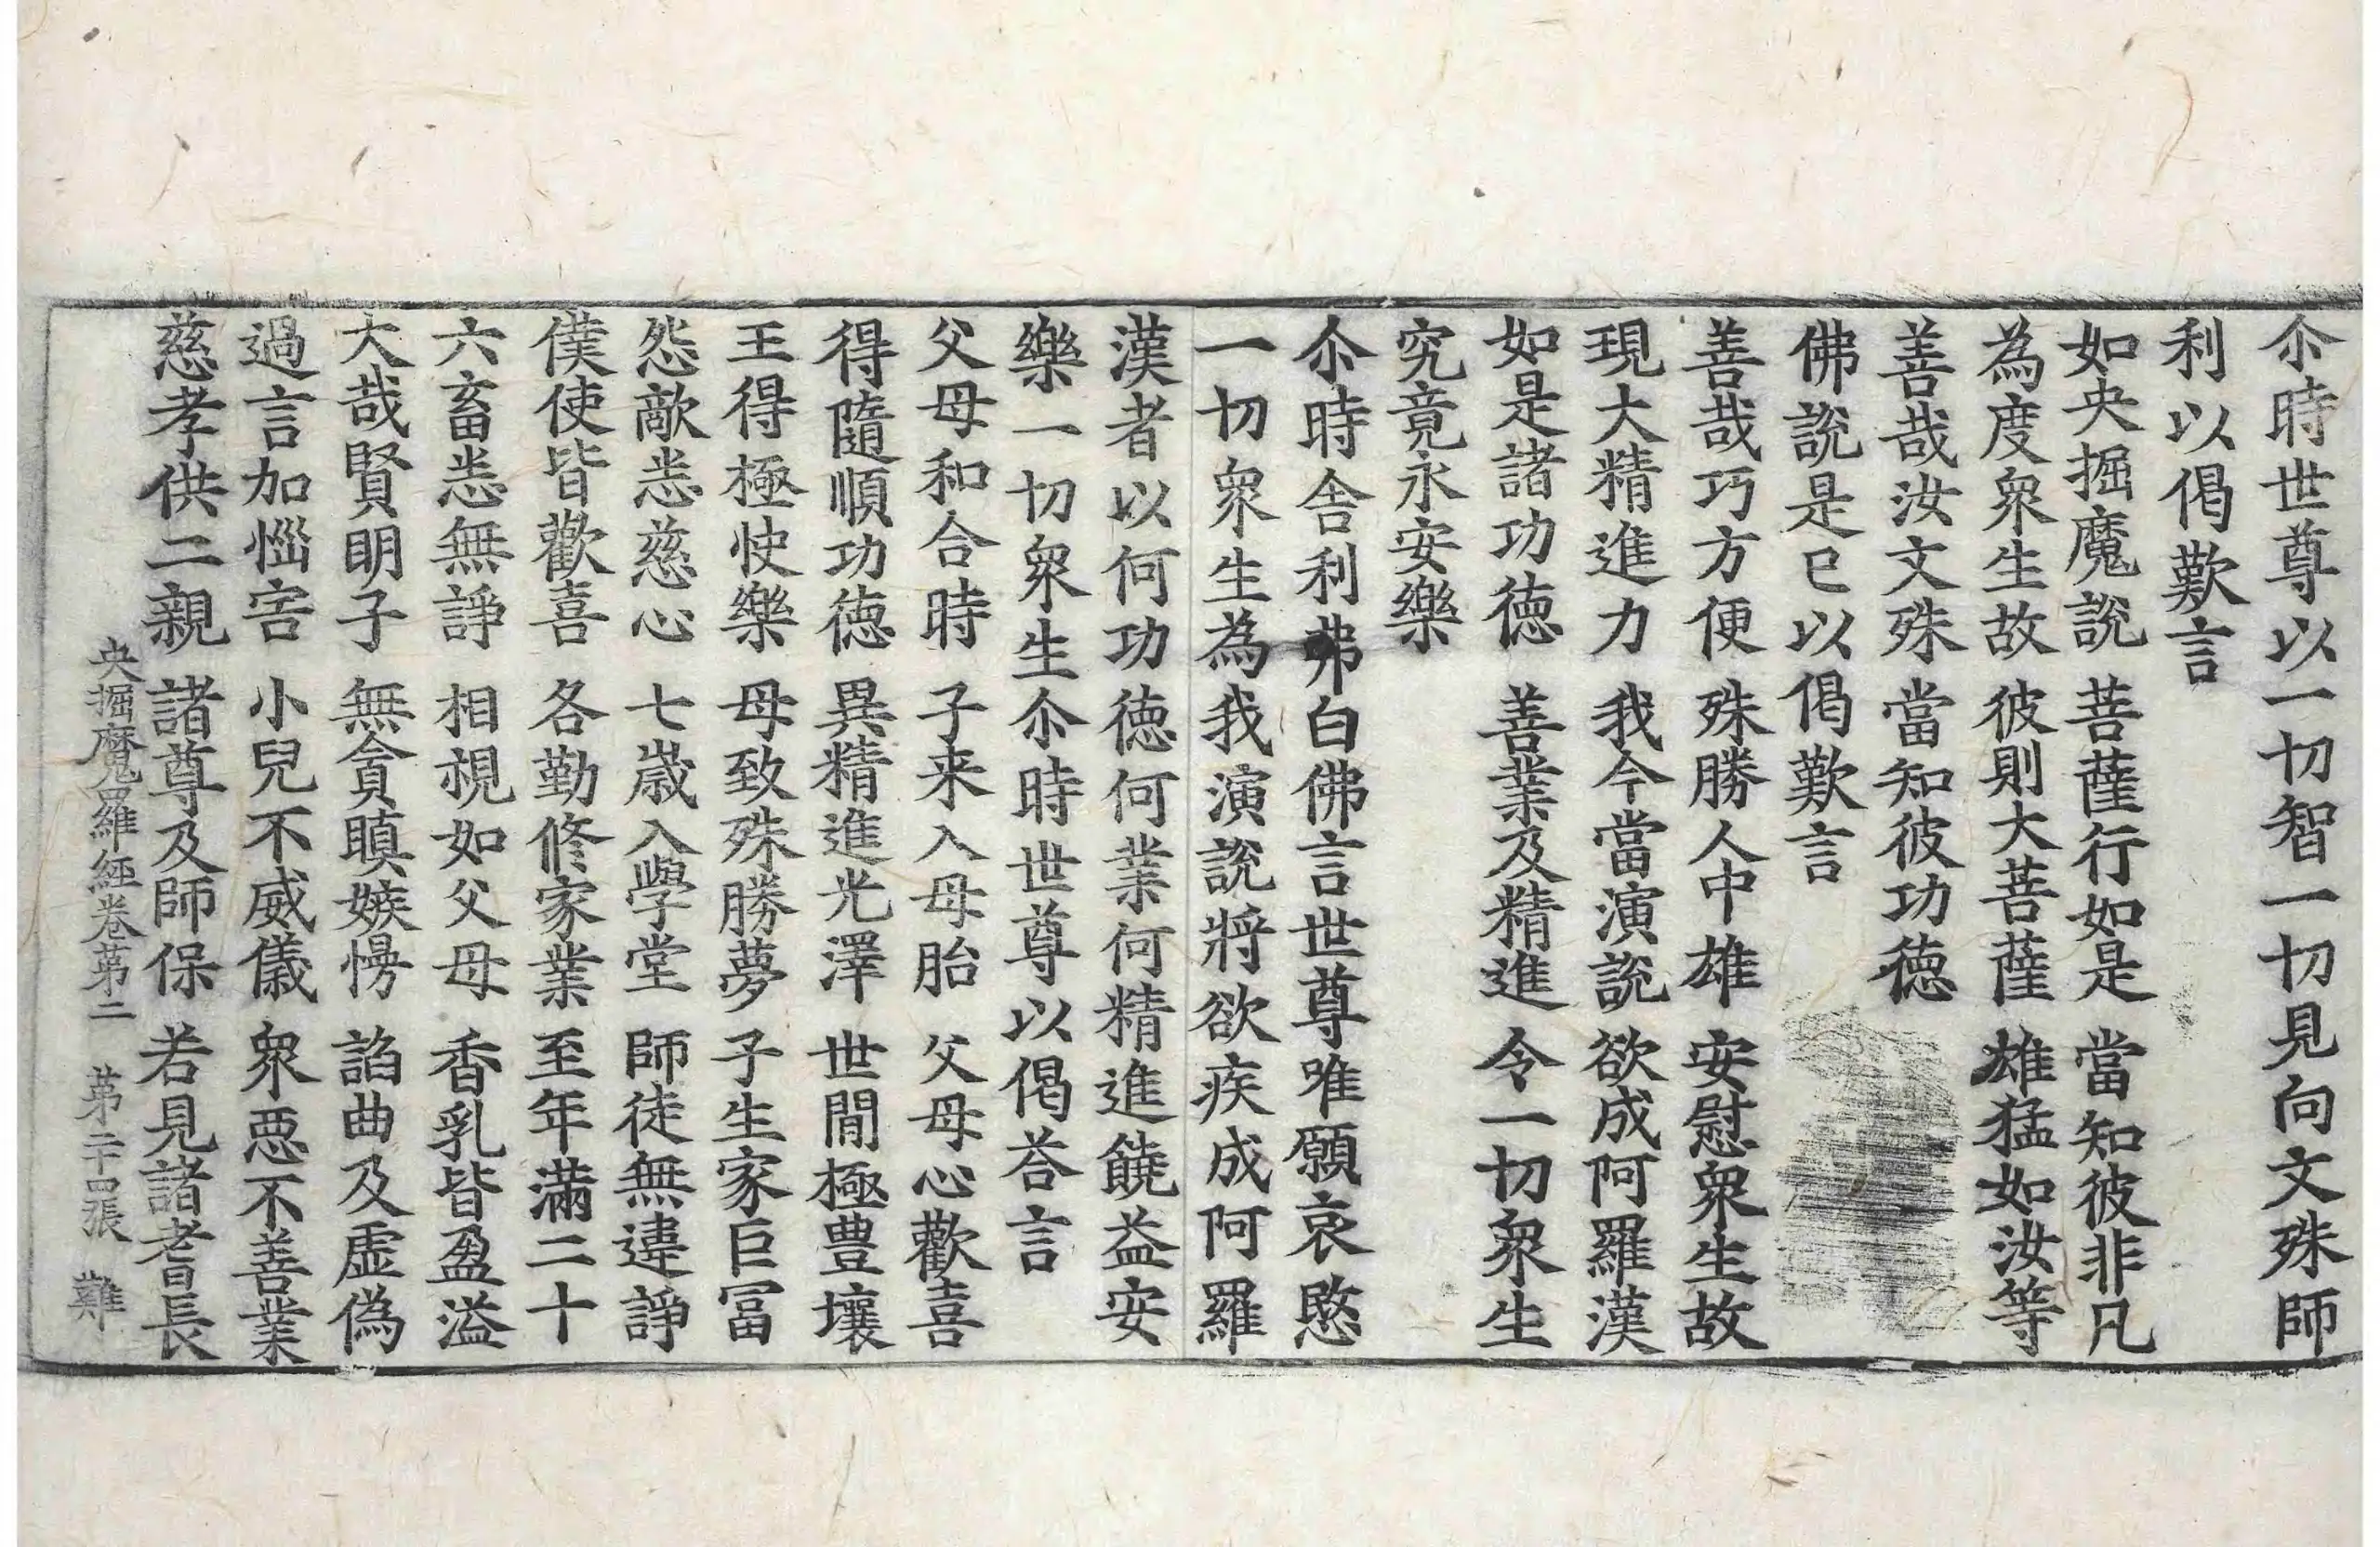 尒時世尊以一切智一切見向文殊師
利以偈歎言
如央掘魔說　菩薩行如是　當知彼非凡
為度衆生故　彼則大菩薩　雄猛如汝等
善哉汝文殊　當知彼功德
佛說是已以偈歎言
善哉巧方便　殊勝人中雄　安慰衆生故
現大精進力　我今當演說　欲成阿羅漢
如是諸功德　善業及精進　令一切衆生
究竟永安樂
尒時舍利弗白佛言世尊唯願哀愍
一切衆生為我演說將欲疾成阿羅
漢者以何功德何業何精進饒益安
樂一切衆生尒時世尊以偈荅言
父母和合時　子来入母胎　父母心歡喜
得隨順功德　異精進光澤　世間極豊壤
王得極快樂　母致殊勝夢　子生家巨冨
怨敵恙慈心　七歲入學堂　師徒無違諍
僕使皆歡喜　各勤修家業　至年滿二十
六畜恙無諍　相視如父母　香乳皆盈溢
大哉賢明子　無貪瞋嫉慢　諂曲及虛偽
過言加惱害　小兒不威儀　衆惡不善業
慈孝供二親　諸尊及師保　若見諸耆長
央掘魔羅經卷第二　第二十四張　難